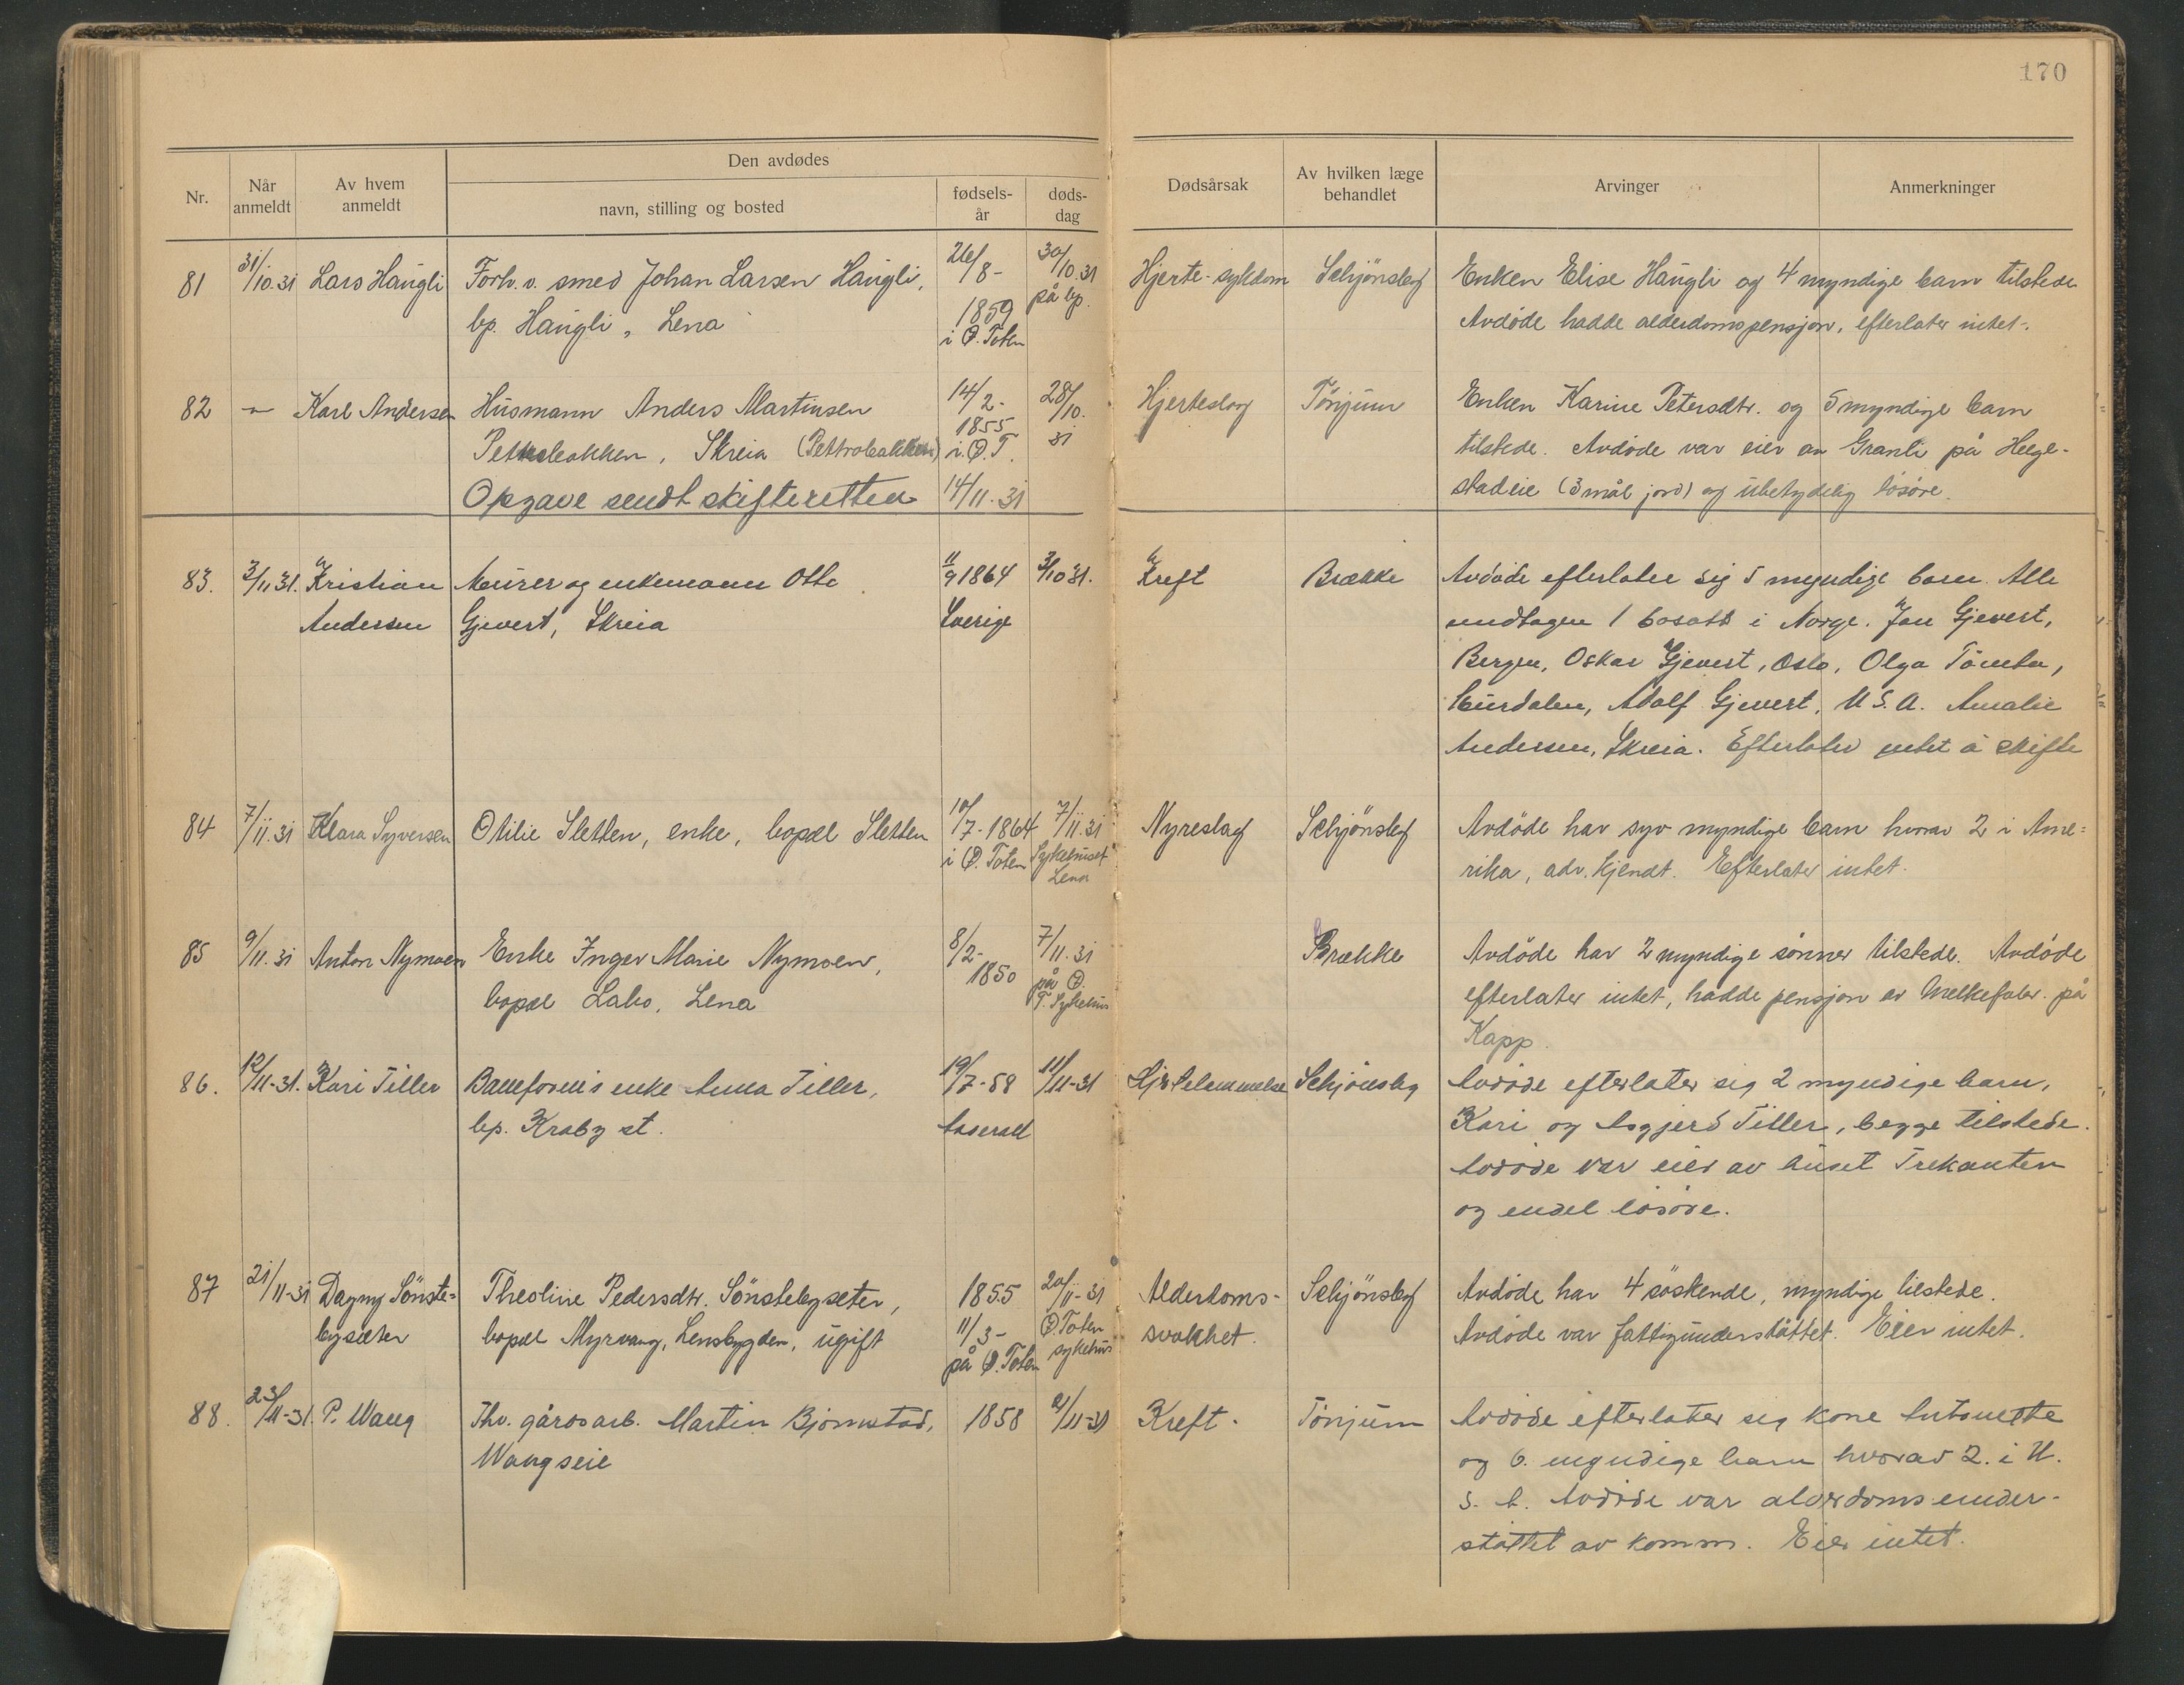 170
Den avdødes
Nr.
Når anmeldt
Av hvem anmeldt
navn, stilling og bosted
fødsels-år
døds-dag
Dødsårsak
Av hvilken læge behandlet
Arvinger
Anmerkninger
81 31/10.31 Lars Haugli Forh.v. smed Johan Larsen Haugli, 26/8- 30/10.31 Hjerte-sykdom Schjønsby Enken Elise Haugli og 4 myndige barn tilstede
bp. Haugli, Lena 1859 på bp. Avdøde hadde alderdomspensjon, efterlater intet.
i Ø. Toten
82 Karl Andersen Husmann Anders Martinsen 14/2- 28/10. Hjerteslag Tönjum Enken Karine Petersdtr. og 5 myndige barn
1855 31
Skreia (Pettrobakken) i Ø.T. tilstede. Avdøde var eier av Granli på Hege-
Opgave sendt skifteretten 14/11.31 stadeie (3 mål jord) og ubetydelig løsøre.
83. 3/11 31. Kristian Murer og enkemann Otto 11/9 1864 3/10 31. Kreft Brække Avdøde efterlater sig 5 myndige barn. Alle
Andersen Gjevert, Skreia Sverige undtagen 1 bosatt i Norge. Jon Gjevert,
Bergen, Oskar Gjevert, Oslo, Olga Tömten,
Hurdalen, Adolf Gjevert, U.S.A. Amalie
Andersen, Skreia. Efterlater intet å skifte
84 7/11.31 Klara Syversen Otilie Sletten, enke, bopæl Sletten 10/7-1864 7/11.31 Nyreslag Schjönsby Avdöde har syv myndige barn hvorav 2 i Ame=
i Ø. Toten Sykehuset Lena rika, adr. kjendt. Efterlater intet.
85 9/11.31 Anton Nymoen Enke Inger Marie Nymoen, 8/2- 7/11.31 Brække Avdöde har 2 myndige sönner tilstede. Avdöde
bopæl Labo, Lena 1850 på Ø. T. Sykehus efterlater intet, hadde pensjon av Melkefabr. på
Kapp.
86. 12/11-31. Kari Tiller Baneform's enke Anna Tiller, 19/7-58 11/11-31 Hjertelammelse Schjönsby Avdöde efterlater sig 2 myndige barn,
bp. Kraby st. Kari og Asgjerd Tiller, begge tilstede.
Avdöde var eier av huset Trekanten
og endel løsøre.
87 21/11-31 Dagny Sönste= Theoline Pedersdtr. Sönstebyseter, 1855 20/11-31 Alderdoms- Schjönsby Avdöde har 4 söskende, myndige tilstede.
byseter bopæl Myrvang, Lensbygden, ugift 11/3- Ø Toten sykehus svakhet. Avdöde var fattigunderstöttet. Eier intet.
på Ø. Toten
88. 23/11-31. P. Wang Fhv. gårdsarb. Martin Bjørnstad, 1858 21/11-31 Kreft. Tönjum Avdöde efterlater sig kone Antonette
Wangseie og 6. myndige barn hvorav 2. i U.
S. A. Avdöde var alderdomsunder-
støttet av komm. Eier intet.